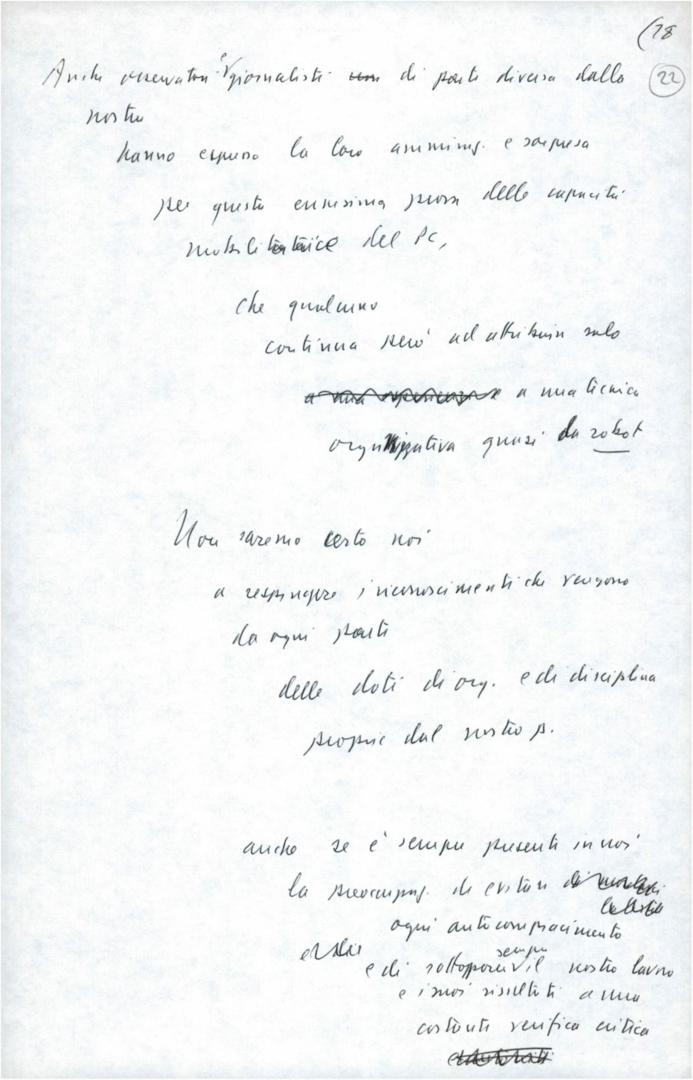 (78
22
Anche osservatori e giornalisti di parte diversa dalla
nostra
hanno espresso la loro ammiraz. e sorpresa
per questa ennesima prova delle capacità
mobilitatrice del PC,
che qualcuno
continua però ad attribuire solo
a una tecnica
organizzativa quasi da robot
Non saremo certo noi
a respingere i riconoscimenti che vengono
da ogni parte
delle doti di org. e di disciplina
proprie del nostro p.
anche se è sempre presente in noi
la preoccupaz. di evitare
ogni autocompiacimento
sempre
e di sottoporre il nostro lavoro
e i suoi risultati a una
costante verifica critica